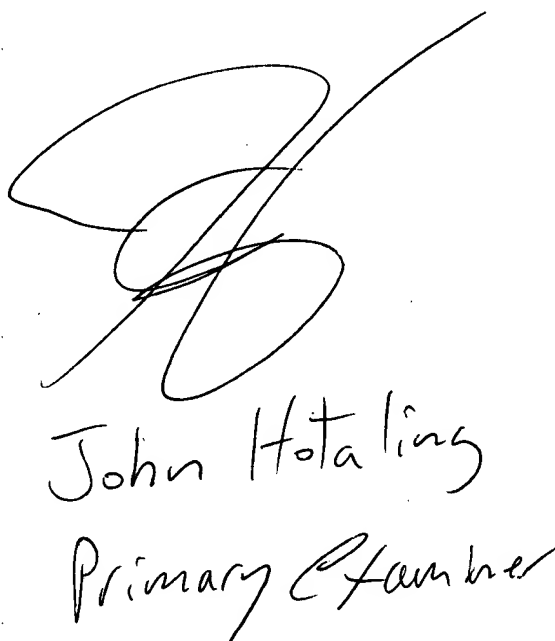 John Hotaling
Primary Examiner